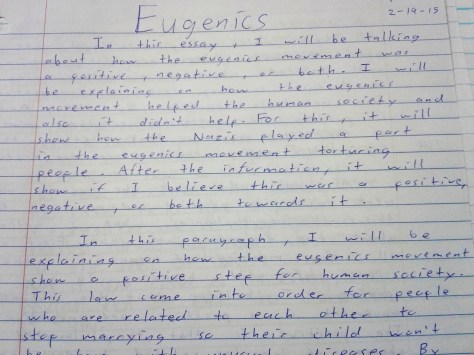 Eugenics
2-19-15
In this essay, I will be talking
about how the eugenics movement was
a positive, negative, or both. I will
be explaining on how the eugenics
movement helped the human society and
also it didn't help. For this, it will
show how the Nazis played a part
in the eugenics movement torturing
people. After the information, it will
show if I believe this was a positive,
negative, or both towards it.
In this paragraph, I will be
explaining on how the eugenics movement
show a positive step for human society.
This law came into order for people
who are related to each other to
stop marrying so their child won't
be born with unusual diseases. By